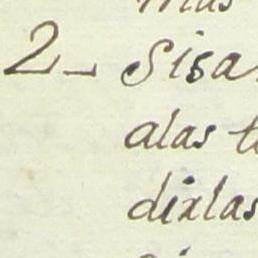 mas
2- Sisa
alas t
dixlas